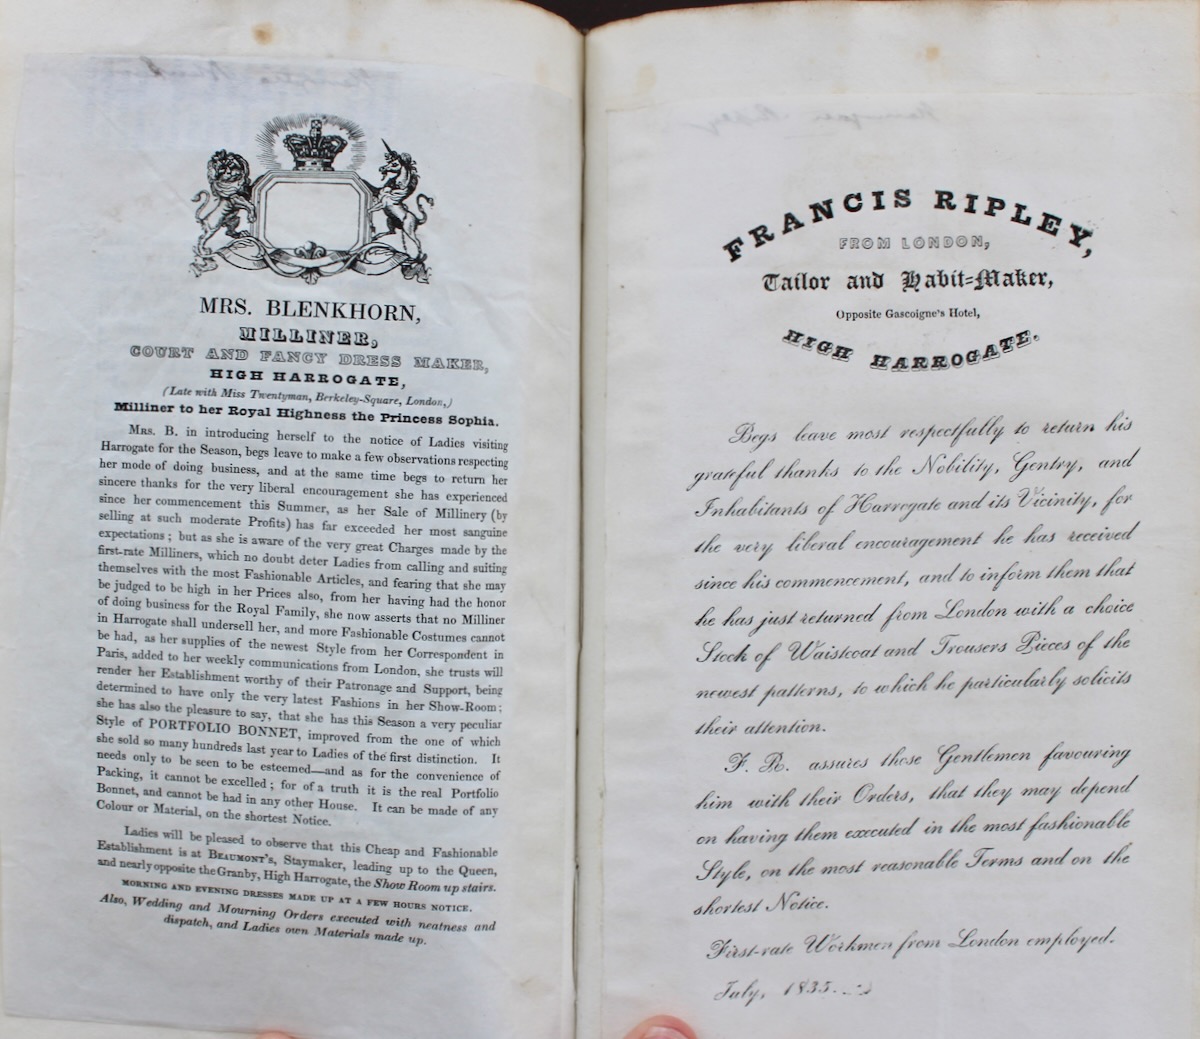 MRS. BLENKHORN,
MILLINER,
COURT AND FANCY DRESS MAKER,
HIGH HARROGATE,
(Late with Miss Twentyman, Berkeley-Square, London,)
Milliner to her Royal Highness the Princess Sophia.
MRS. B. in introducing herself to the notice of Ladies visiting
Harrogate for the Season, begs leave to make a few observations respecting
her mode of doing business, and at the same time begs to return her
sincere thanks for the very liberal encouragement she has experienced
since her commencement this Summer, as her Sale of Millinery (by
selling at such moderate Profits) has far exceeded her most sanguine
expectations; but as she is aware of the very great Charges made by the
first-rate Milliners, which no doubt deter Ladies from calling and suiting
themselves with the most Fashionable Articles, and fearing that she may
be judged to be high in her Prices also, from her having had the honor
of doing business for the Royal Family, she now asserts that no Milliner
in Harrogate shall undersell her, and more Fashionable Costumes cannot
be had, as her supplies of the newest Style from her Correspondent in
Paris, added to her weekly communications from London, she trusts will
render her Establishment worthy of their Patronage and Support, being
determined to have only the very latest Fashions in her Show-Room;
she has also the pleasure to say, that she has this Season a very peculiar
Style of PORTFOLIO BONNET, improved from the one of which
she sold so many hundreds last year to Ladies of the first distinction. It
needs only to be seen to be esteemed—and as for the convenience of
Packing, it cannot be excelled; for of a truth it is the real Portfolio
Bonnet, and cannot be had in any other House. It can be made of any
Colour or Material, on the shortest Notice.
Ladies will be pleased to observe that this Cheap and Fashionable
Establishment is at BEAUMONT'S, Staymaker, leading up to the Queen,
and nearly opposite the Granby, High Harrogate, the Show Room up stairs.
MORNING AND EVENING DRESSES MADE UP AT A FEW HOURS NOTICE.
Also, Wedding and Mourning Orders executed with neatness and
dispatch, and Ladies own Materials made up.
FRANCIS RIPLEY,
FROM LONDON,
Tailor and Habit-Maker,
Opposite Gascoigne's Hotel,
HIGH HARROGATE.
Begs leave most respectfully to return his
grateful thanks to the Nobility, Gentry, and
Inhabitants of Harrogate and its Vicinity, for
the very liberal encouragement he has received
since his commencement, and to inform them that
he has just returned from London with a choice
Stock of Waistcoat and Trousers Pieces of the
newest patterns, to which he particularly solicits
their attention.
F. R. assures those Gentlemen favouring
him with their Orders, that they may depend
on having them executed in the most fashionable
Style, on the most reasonable Terms and on the
shortest Notice.
First-rate Workmen from London employed.
July, 1835.